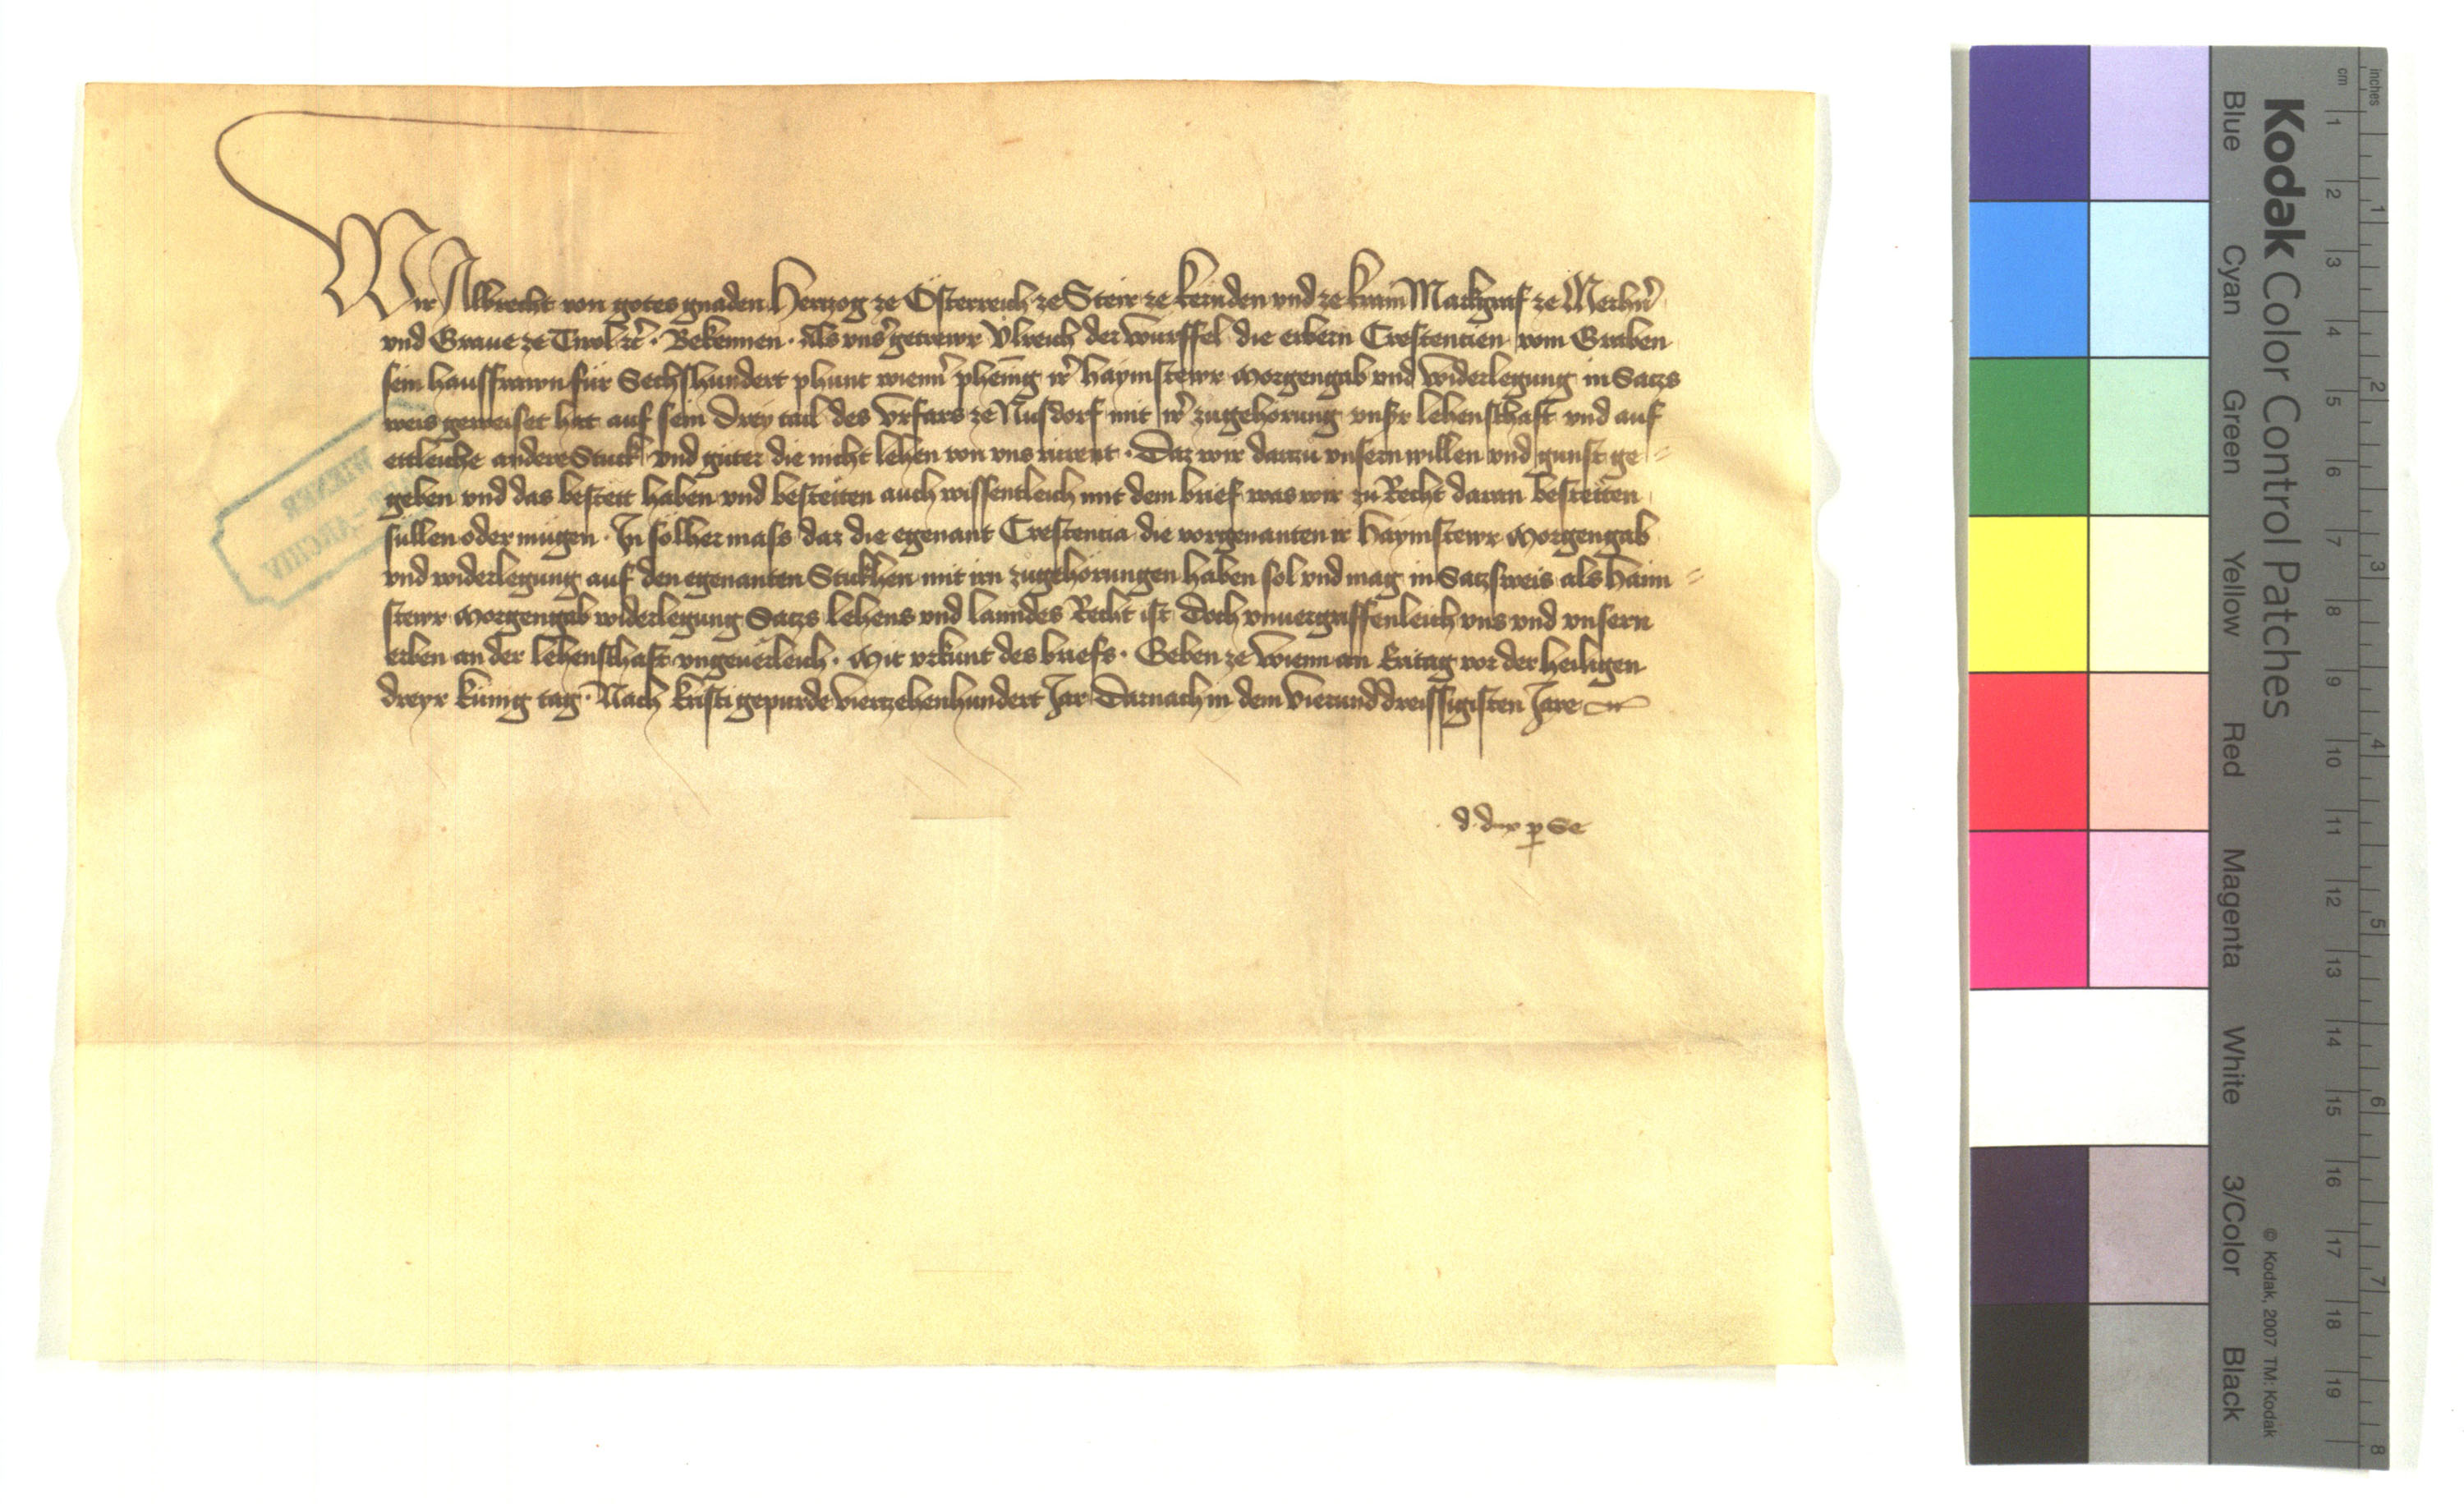 Wir Albrecht von gotes gnaden Hertzog ze Österreich ze Steir ze kernden vnd ze krain Markgraf ze Merhern̄
vnd Graue ze Tirol ꝛc̄ · Bekennen · Als vnser̄ getrewr Vlreich der würffel die erbern Crestentien vom Graben
sein hausfrawn für Sechshundert phunt wienn̄ phēnig ir̄ haymstewr morgengab vnd widerlegung in Satzs
weis geweiset hat auf sein drey tail des vrfars ze Nusdorf mit ir̄ zugehörung vnsr̄ lehenschaft vnd auf
ettleiche andere Stuck vnd güter die nicht lehen von vns rürent · Daz wir darzu vnsern willen vnd gunst ge=
geben vnd das bestett haben vnd bestetten auch wissentleich mit dem brief was wir zu Recht daran bestetten
sullen oder mügen · In solher mass daz die egenant Crestentia die vorgenanten ir haymstewr morgengab
vnd widerlegung auf den egenanten Stukhen mit irn zugehörungen haben sol vnd mag in Satzsweis als haim=
stewr morgengab widerlegung Satzs lehens vnd lanndes Recht ist Doch vnuergriffenleich vns vnd vnsern
erben an der lehenschaft vngeuerleich · Mit vrkunt des briefs · Geben ze Wienn an Eritag vor der heiligen
dreyr künig tag · Nach kristi gepurde viertzehenhundert Jar Darnach in dem vierunddreissigisten Jare
d. dux p se
WIENER
ARCHIV
Kodak Color Control Patches
© Kodak, 2007 TM: Kodak
Blue Cyan Green Yellow Red Magenta White 3/Color Black
cm 1 2 3 4 5 6 7 8 9 10 11 12 13 14 15 16 17 18 19
inches 1 2 3 4 5 6 7 8